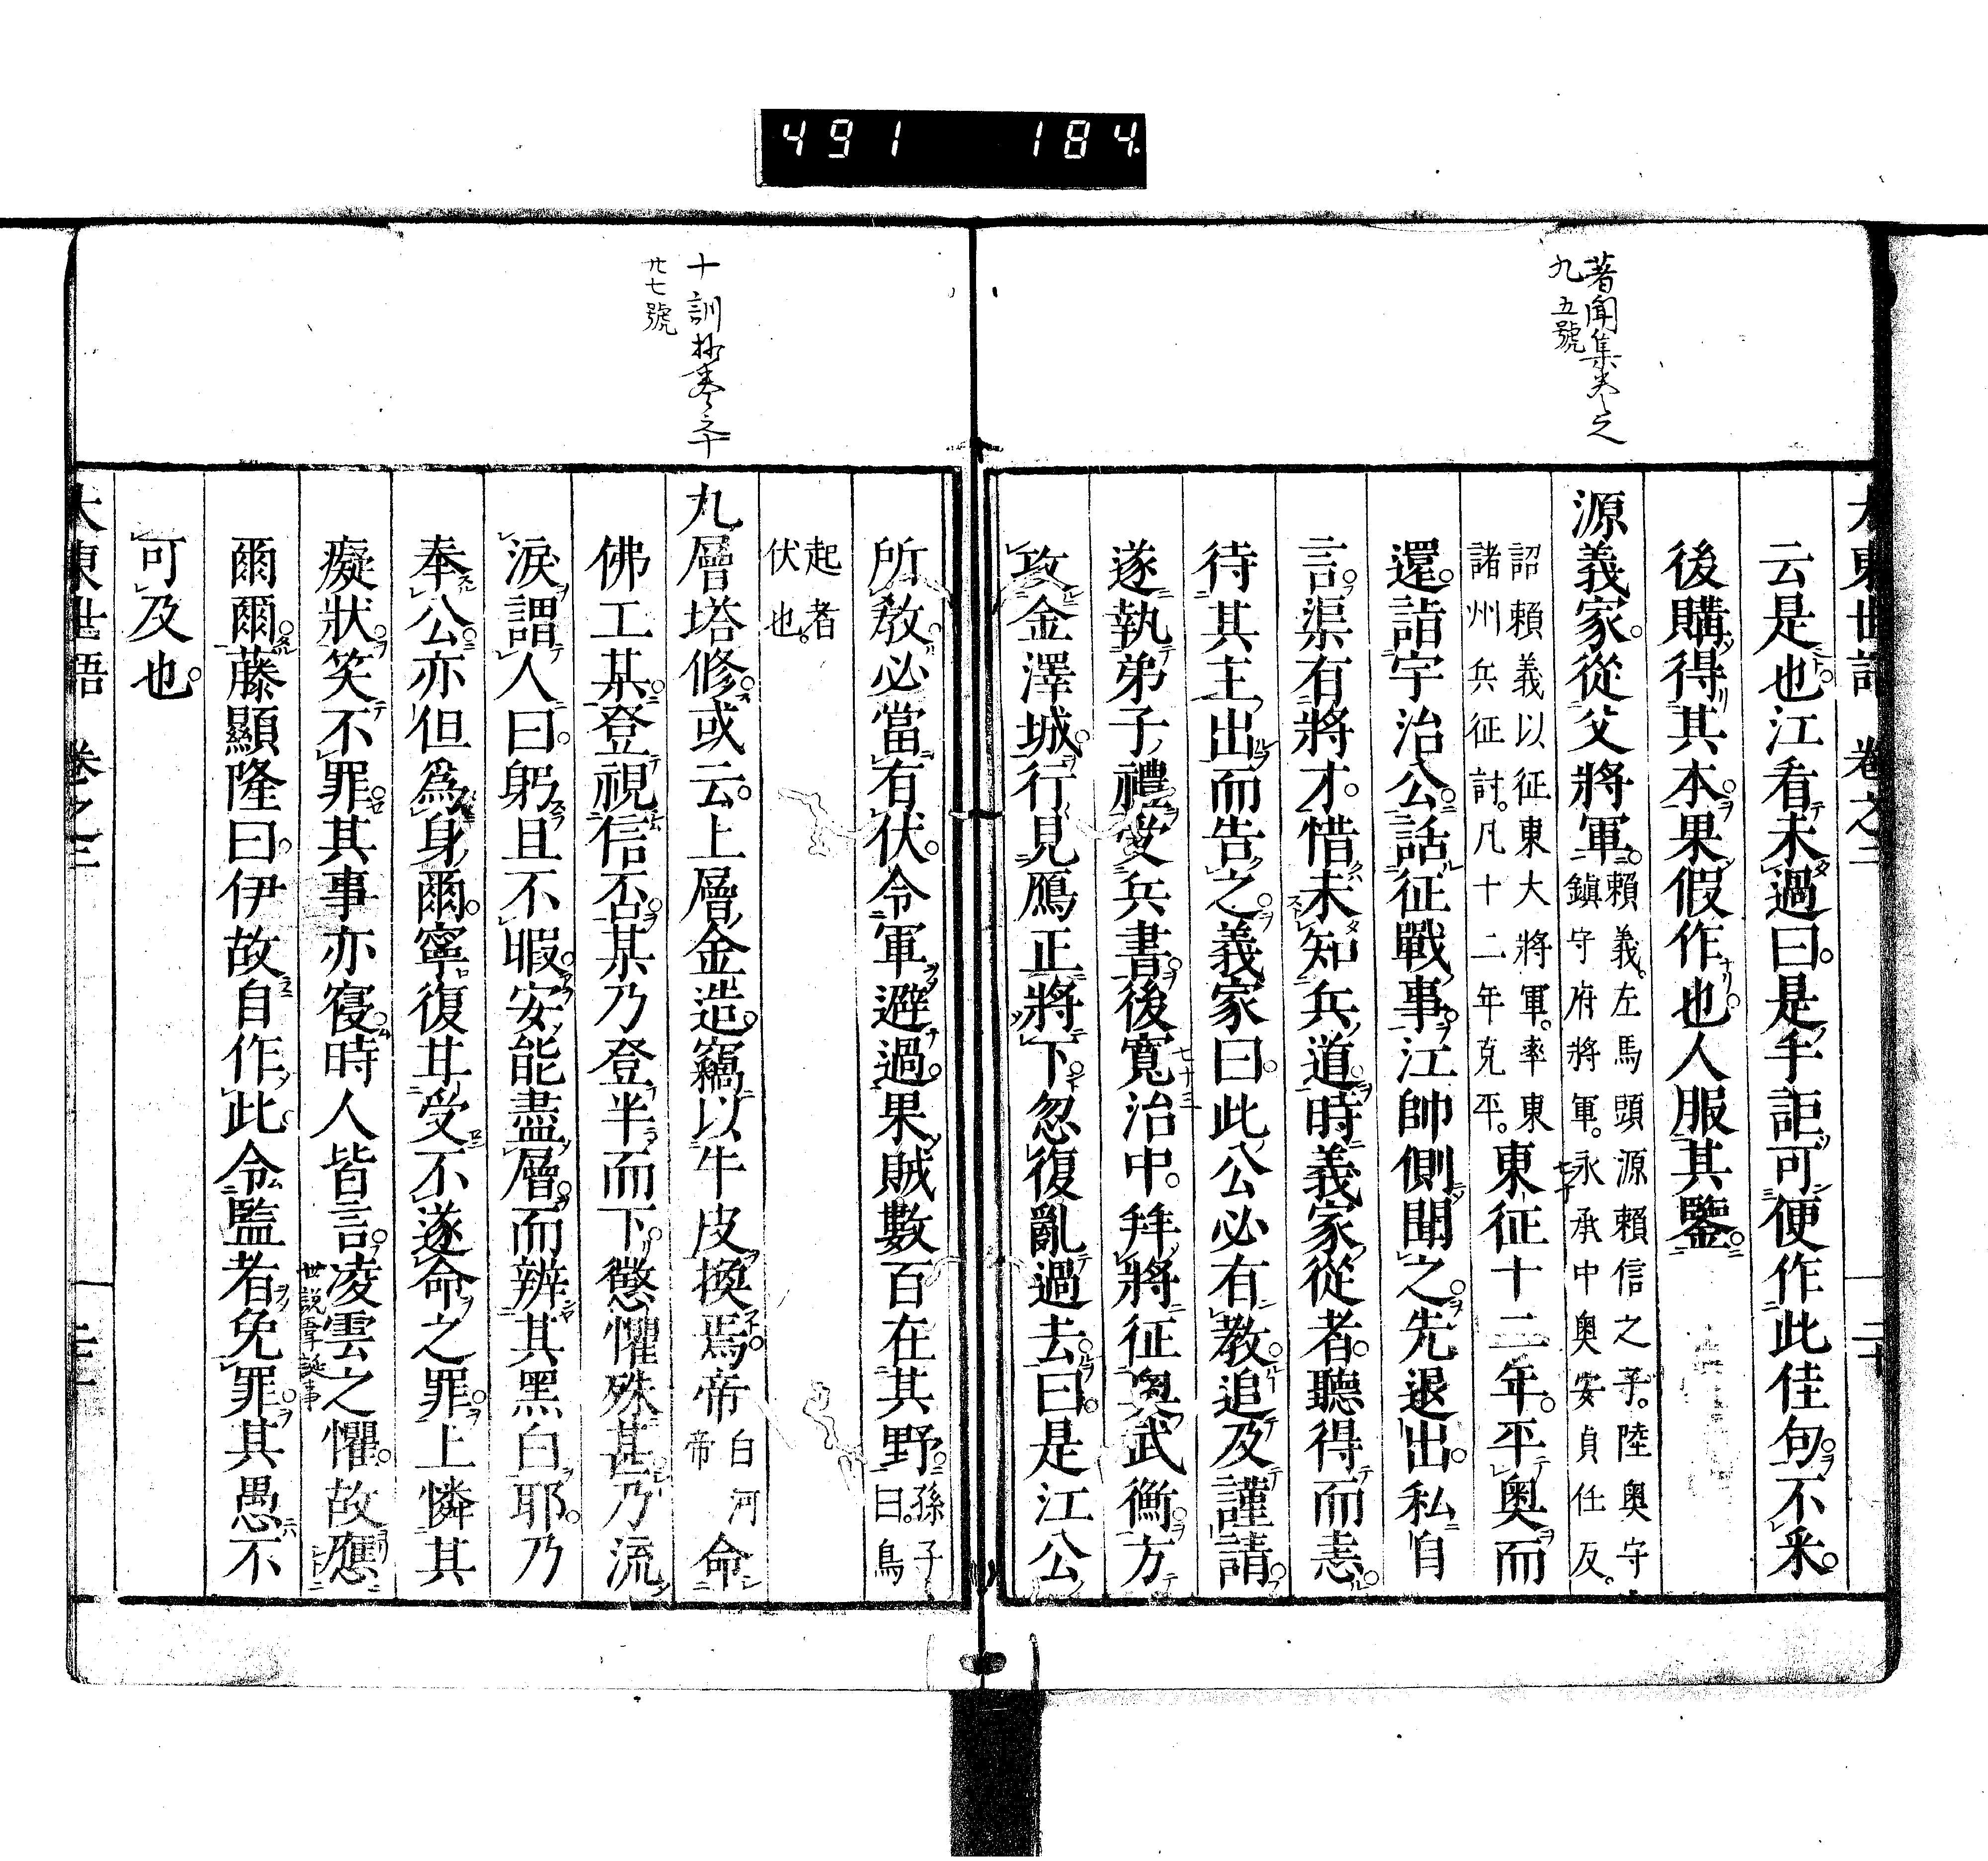 491 184
著聞集卷之
九 五號
大東世語 卷之二 二十
云是也江看未過曰是手詎可便作此佳句不釆
後購得其本果假作也人服其鑒
源義家從父將軍賴義左馬頭源賴信之子陸奧守
鎮守府將軍永承中奧安貞任反
詔賴義以征東大將軍率東
諸州兵征討凡十二年克平東征十二年平奧而
還詣宇治公話征戰事江帥側聞之先退出私自
言渠有將才惜未知兵道時義家從者聽得而恚
待其主出而告之義家曰此公必有教追及謹請
遂執弟子禮受兵書後寬治中拜將征奧武衡方
攻金澤城行見鴈正將下忽復亂過去曰是江公
所教必當有伏令軍避過果賊數百在其野孫子
曰鳥
起者
伏也
十訓抄卷之十
廿七號
九層塔修或云上層金造竊以牛皮換焉帝白河
帝命
佛工某登視信否某乃登半而下懲懼殊甚乃流
淚謂人曰躬且不暇安能盡層而辨其黑白耶乃
奉公亦但為身爾寧復甘受不遂命之罪上憐其
癡狀笑不罪其事亦寢時人皆言凌雲之懼故應
世說韋誕事
爾爾藤顯隆曰伊故自作此令監者免罪其愚不
可及也
大東世語 卷之二